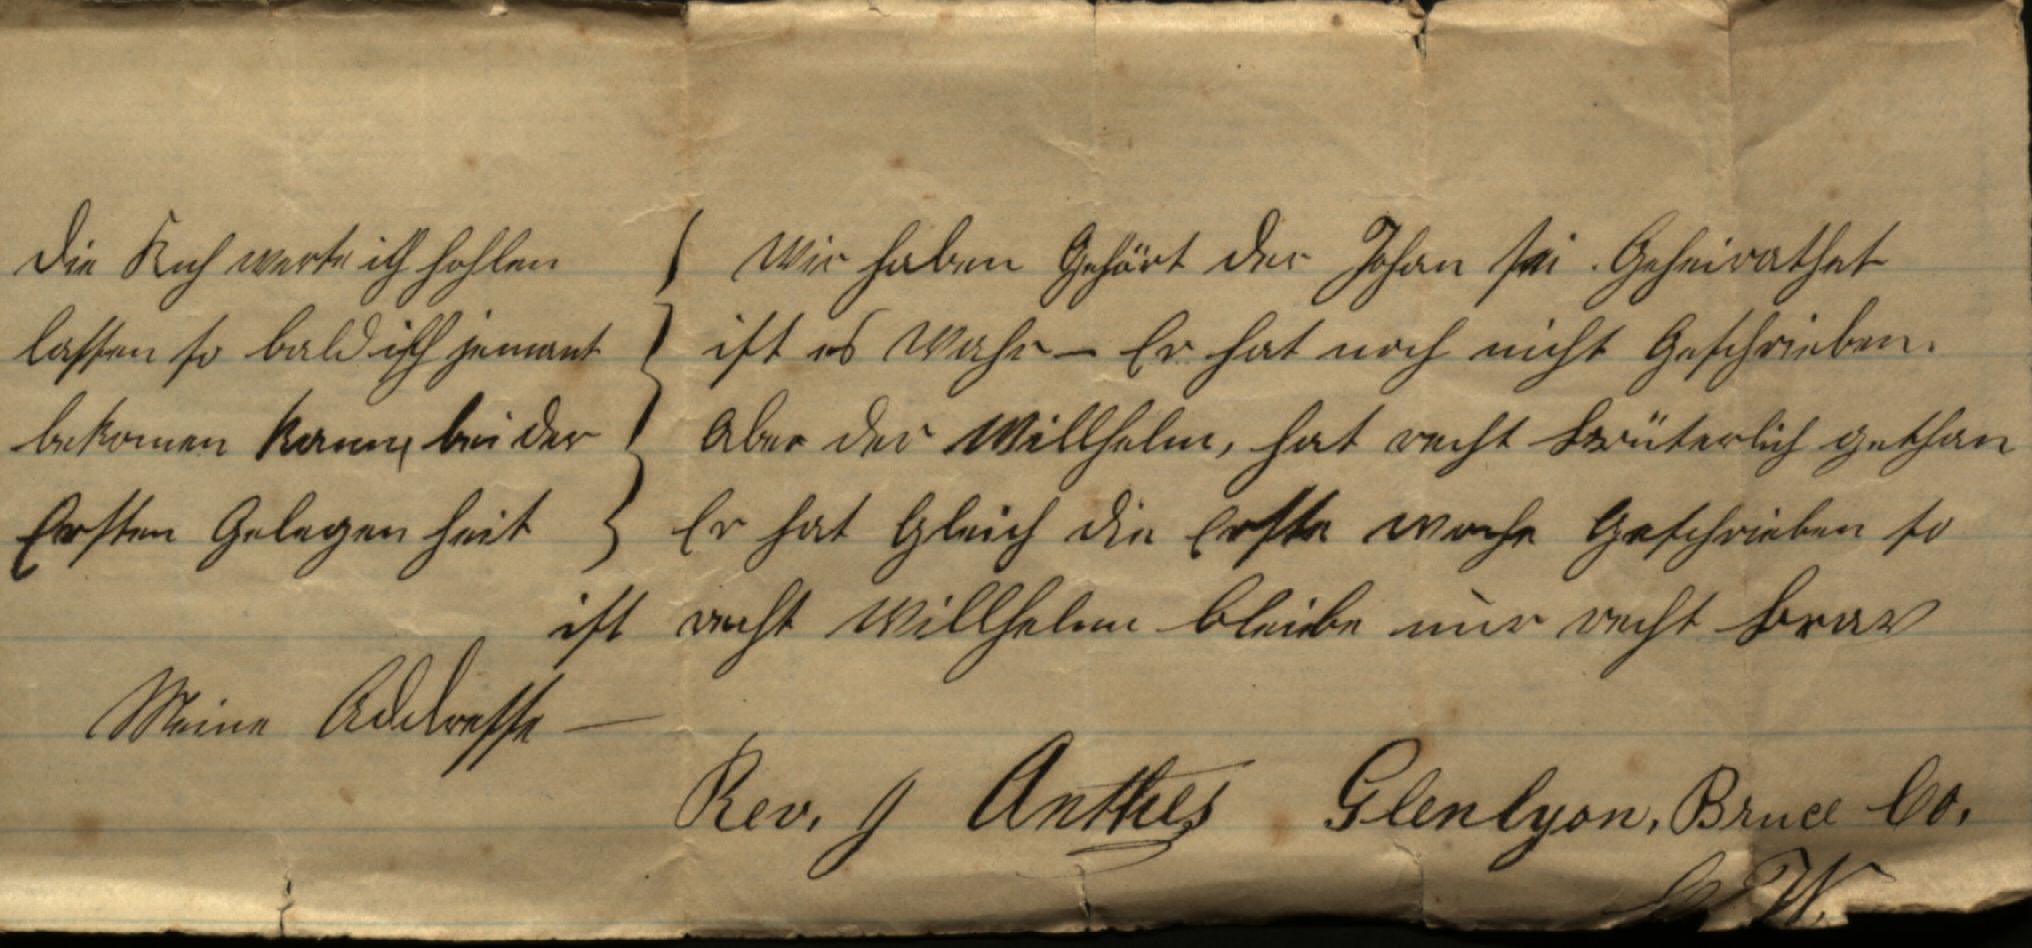 die Kuh werte ich hohlen
lassen so bald ich jemant
bekomen kann, bei der
Ersten Gelegen heit
Wir haben Gehört der Johan sei Geheirathet
ist es Wahr – Er hat noch nicht Geschrieben.
Aber der Willhelm, hat recht brüterlich gethan
Er hat Gleich die Erste woche Geschrieben so
ist recht Willhelm bleibe nur recht brav
Meine Addresse –
Rev. J Anthes Glenlyon, Bruce Co.
C. W.